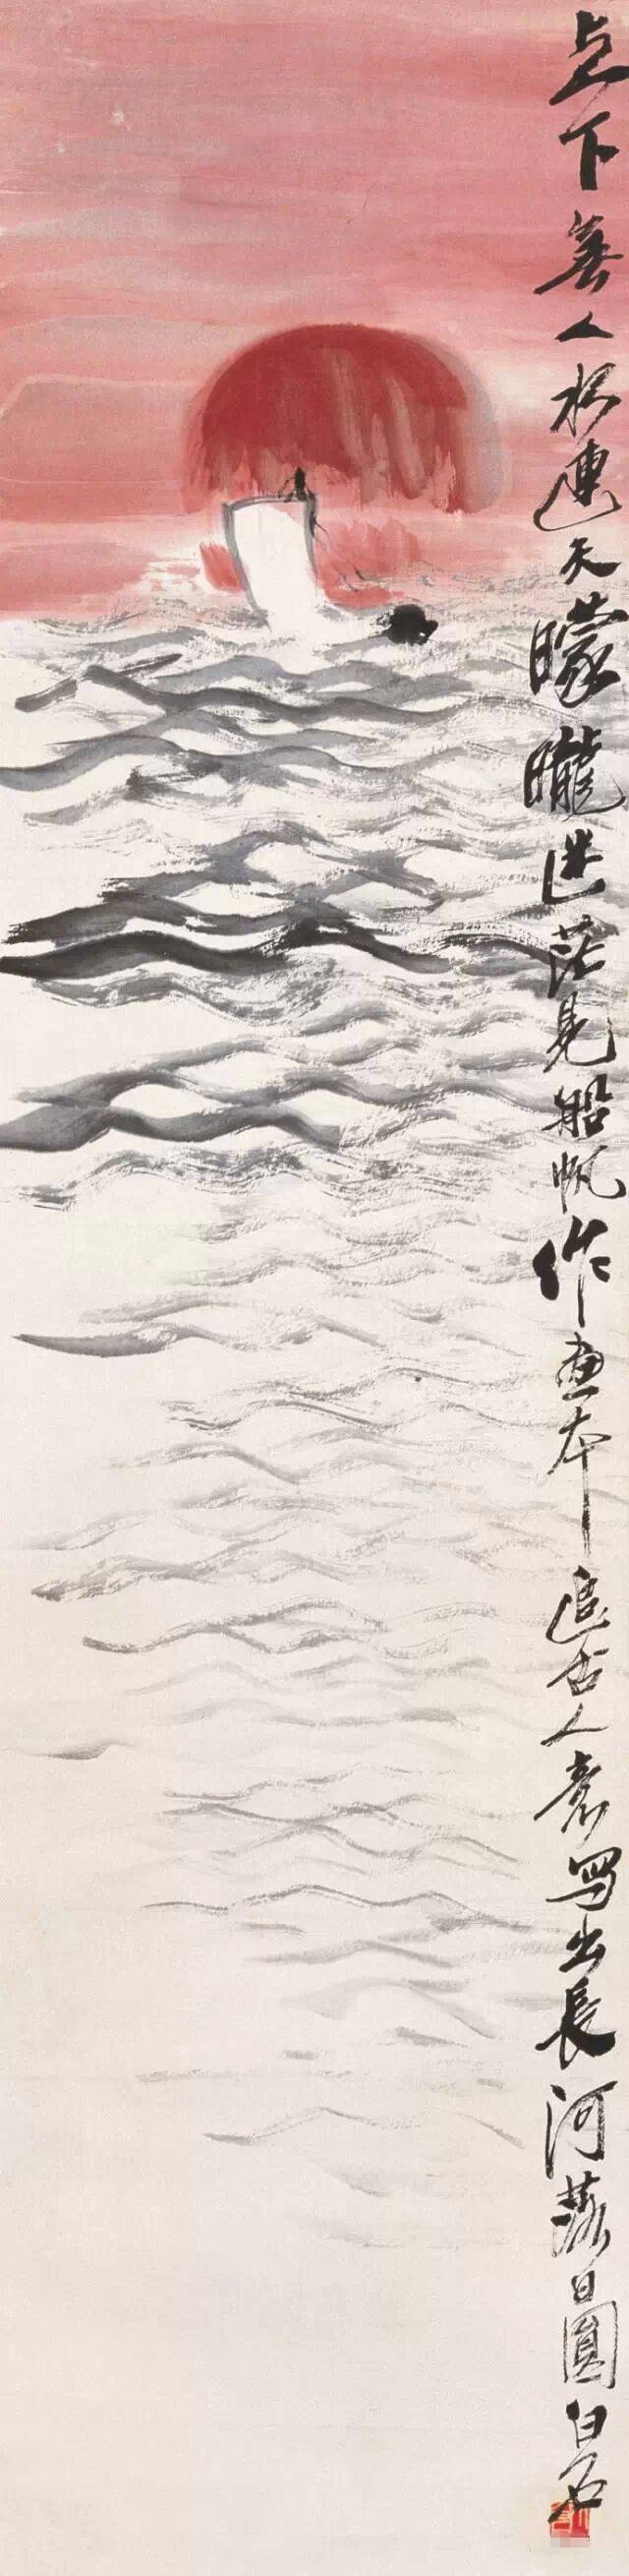 上下無人水連天曚曨迷茫見船帆作畫本追古人意寫出長河落日圓白石